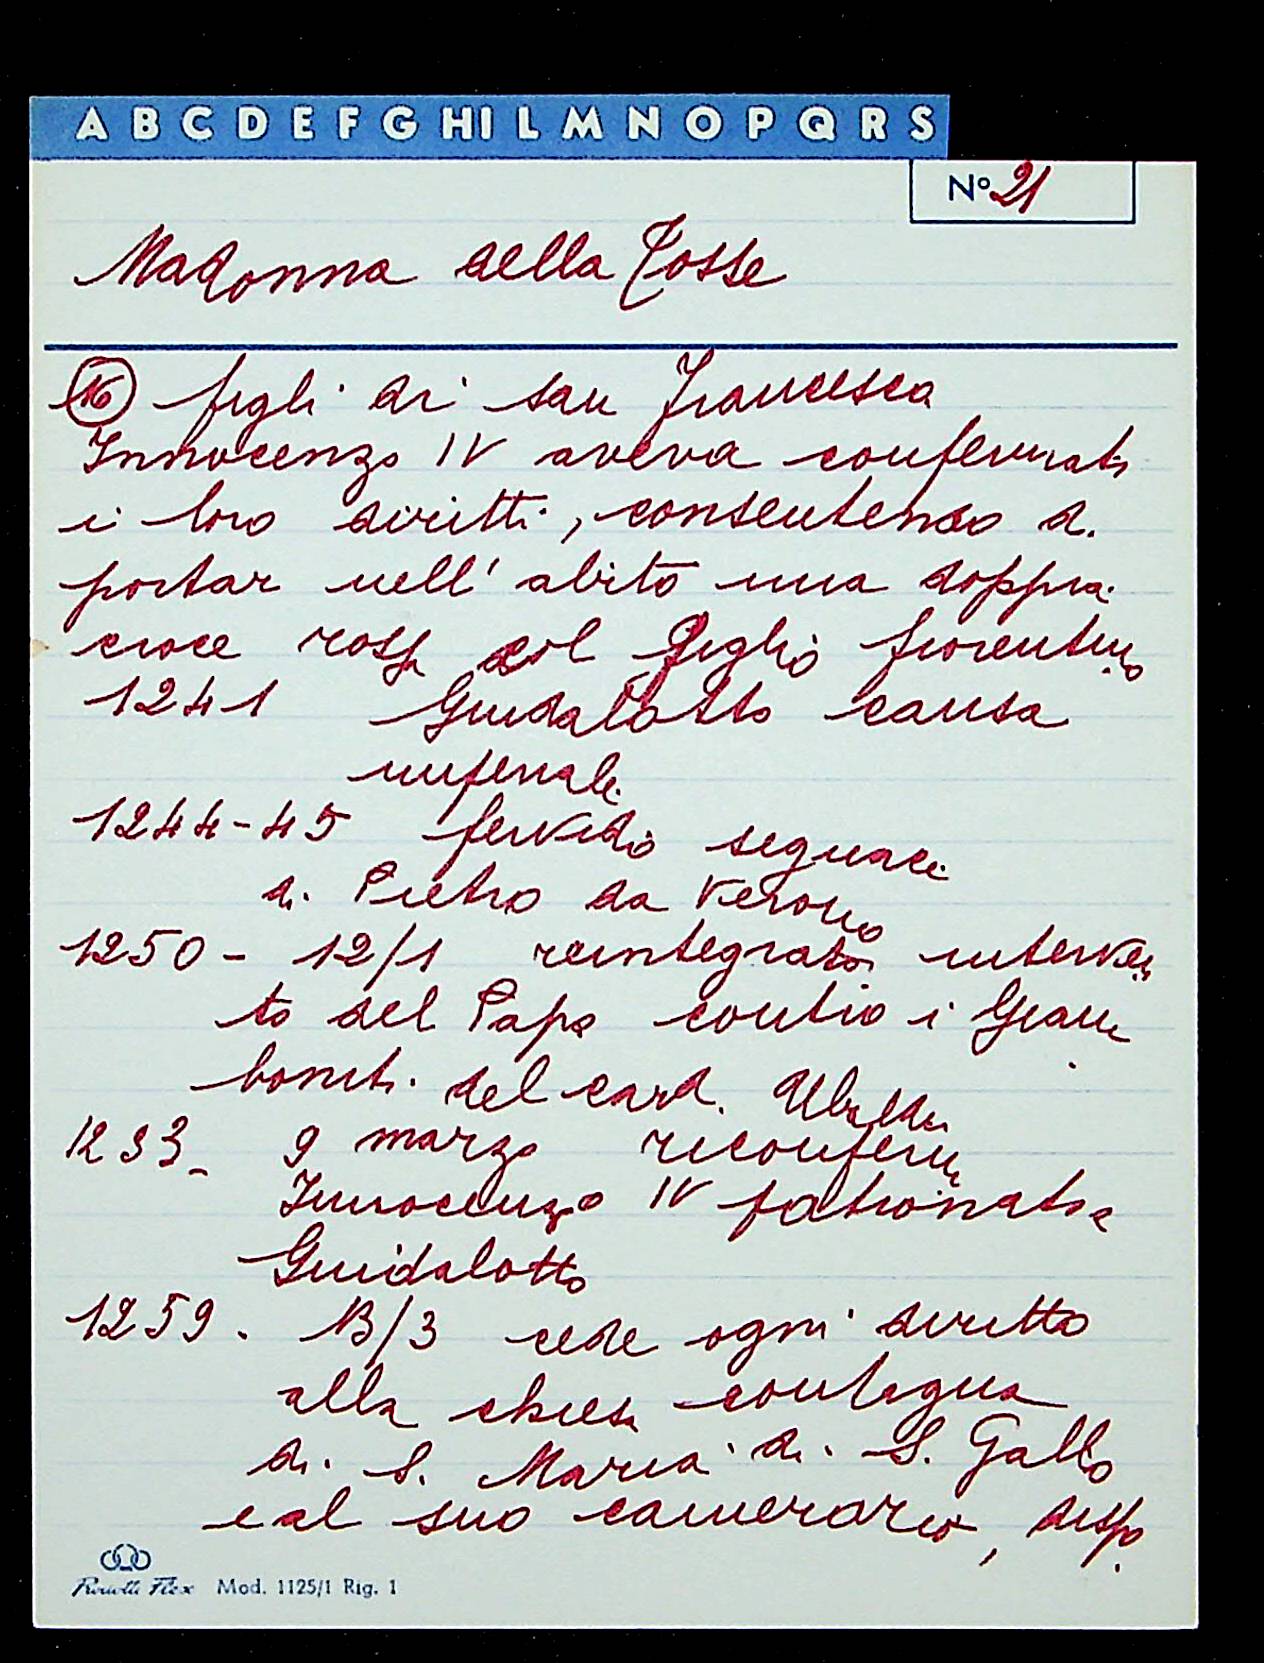 A B C D E F G HI L M N O P Q R S
N° 21
Madonna della Tosse
16 figli di san Francesco
Innocenzo IV aveva confermato
i loro diritti, consentendo di
portar nell' abito una doppia
croce rossa col giglio fiorentino
1241 Guidalotto causa
infernale
1244-45 fervido seguace
di Pietro da Verona
1250 - 12/1 reintegrato interven
to del Papa contro i Giam
boniti del card. Ubaldini
1253_ 9 marzo riconferma
Innocenzo IV patronato a
Guidalotto
1259. 13/3 cede ogni diritto
alla chiesa contigua
di S. Maria di S. Gallo
e al suo camerario, disp.
Mod. 1125/1 Rig. 1